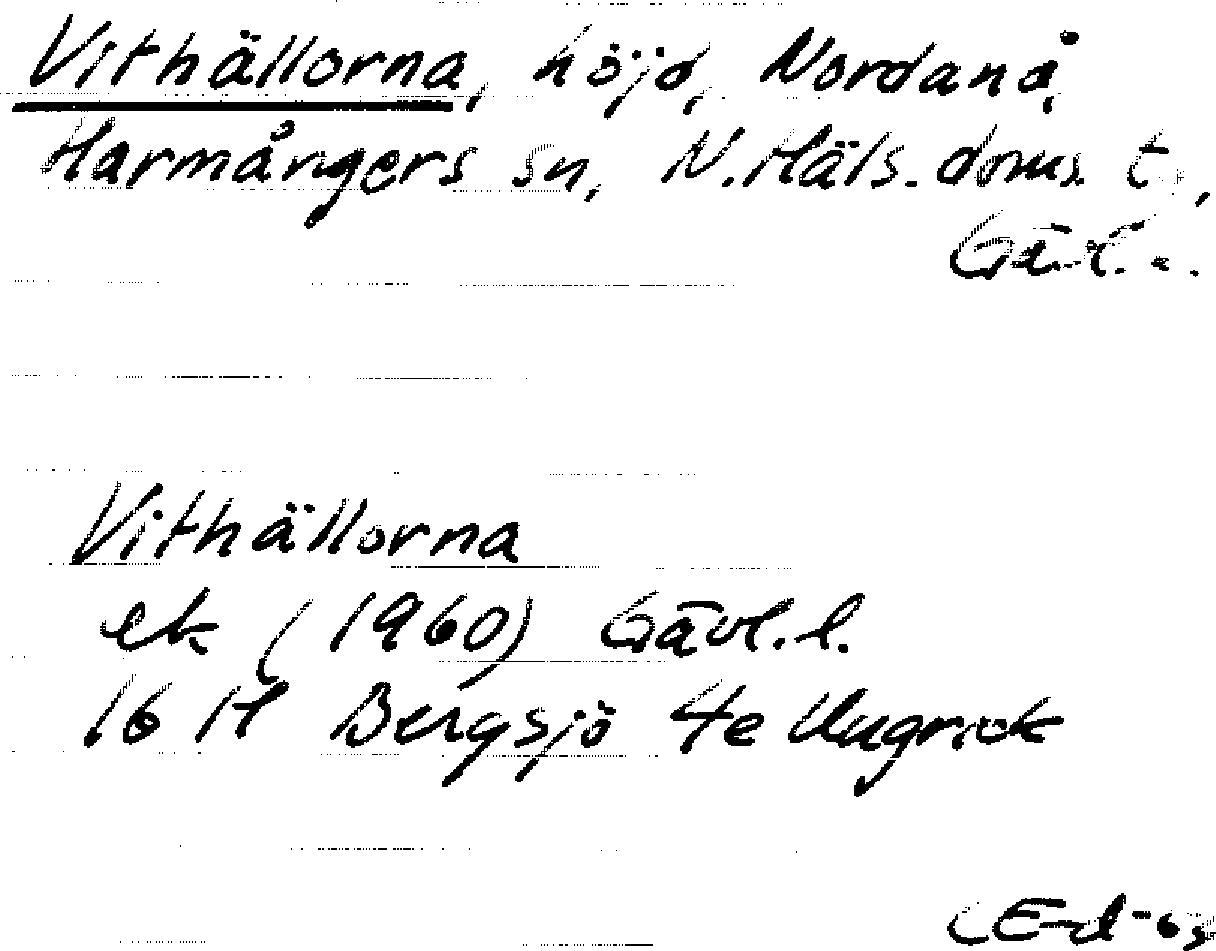 Vithällorna, höjd, Nordanå,
Harmångers sn, N. Häls. doms. t.,
Gävl. l.
Vithällorna
ek (1960) Gävl. l.
16 H Bergsjö 4e